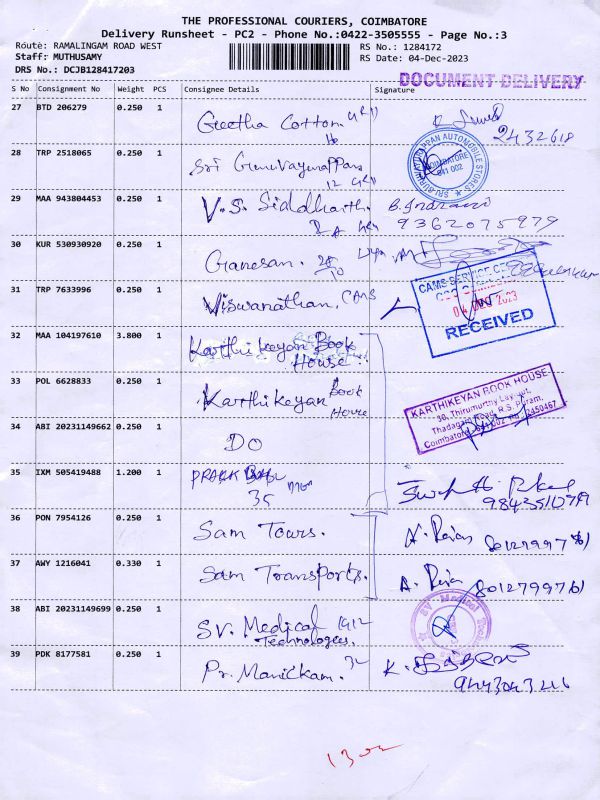 THE PROFESSIONAL COURIERS, COIMBATORE
Delivery Runsheet - PC2 - Phone No.:0422-3505555 - Page No.:3
Route: RAMALINGAM ROAD WEST
RS No.: 1284172
Staff: MUTHUSAMY
RS Date: 04-Dec-2023
DRS No.: DCJB128417203
DOCUMENT DELIVERY
S No Consignment No Weight PCS Consignee Details Signature
27 BTD 206279 0.250 1 Geetha Cotton
2432618
28 TRP 2518065 0.250 1 Sri Guruvayurappan
SRI GURUVAYURAPPAN AUTOMOBILE STORES
COIMBATORE
641 002
29 MAA 943804453 0.250 1 V.S. Siddharth
9362075979
30 KUR 530930920 0.250 1 Ganesan.
31 TRP 7633996 0.250 1 Viswanathan, CAMS
CAMS SERVICE
04 DEC 2023
RECEIVED
32 MAA 104197610 3.800 1 Karthikeyan Book
House
33 POL 6628833 0.250 1 Karthikeyan Book
House
KARTHIKEYAN BOOK HOUSE
30, Thirumurthy Layout,
Thadagam Road, R.S. Puram,
Coimbatore - 641 002 2450467
34 ABI 20231149662 0.250 1 DO
35 IXM 505419488 1.200 1
35
36 PON 7954126 0.250 1 Sam Tours.
37 AWY 1216041 0.330 1 Sam Transports.
38 ABI 20231149699 0.250 1 SV. Medical
Technologies.
SV. Medical
39 PDK 8177581 0.250 1 Pr. Manickam. 32
9443043246